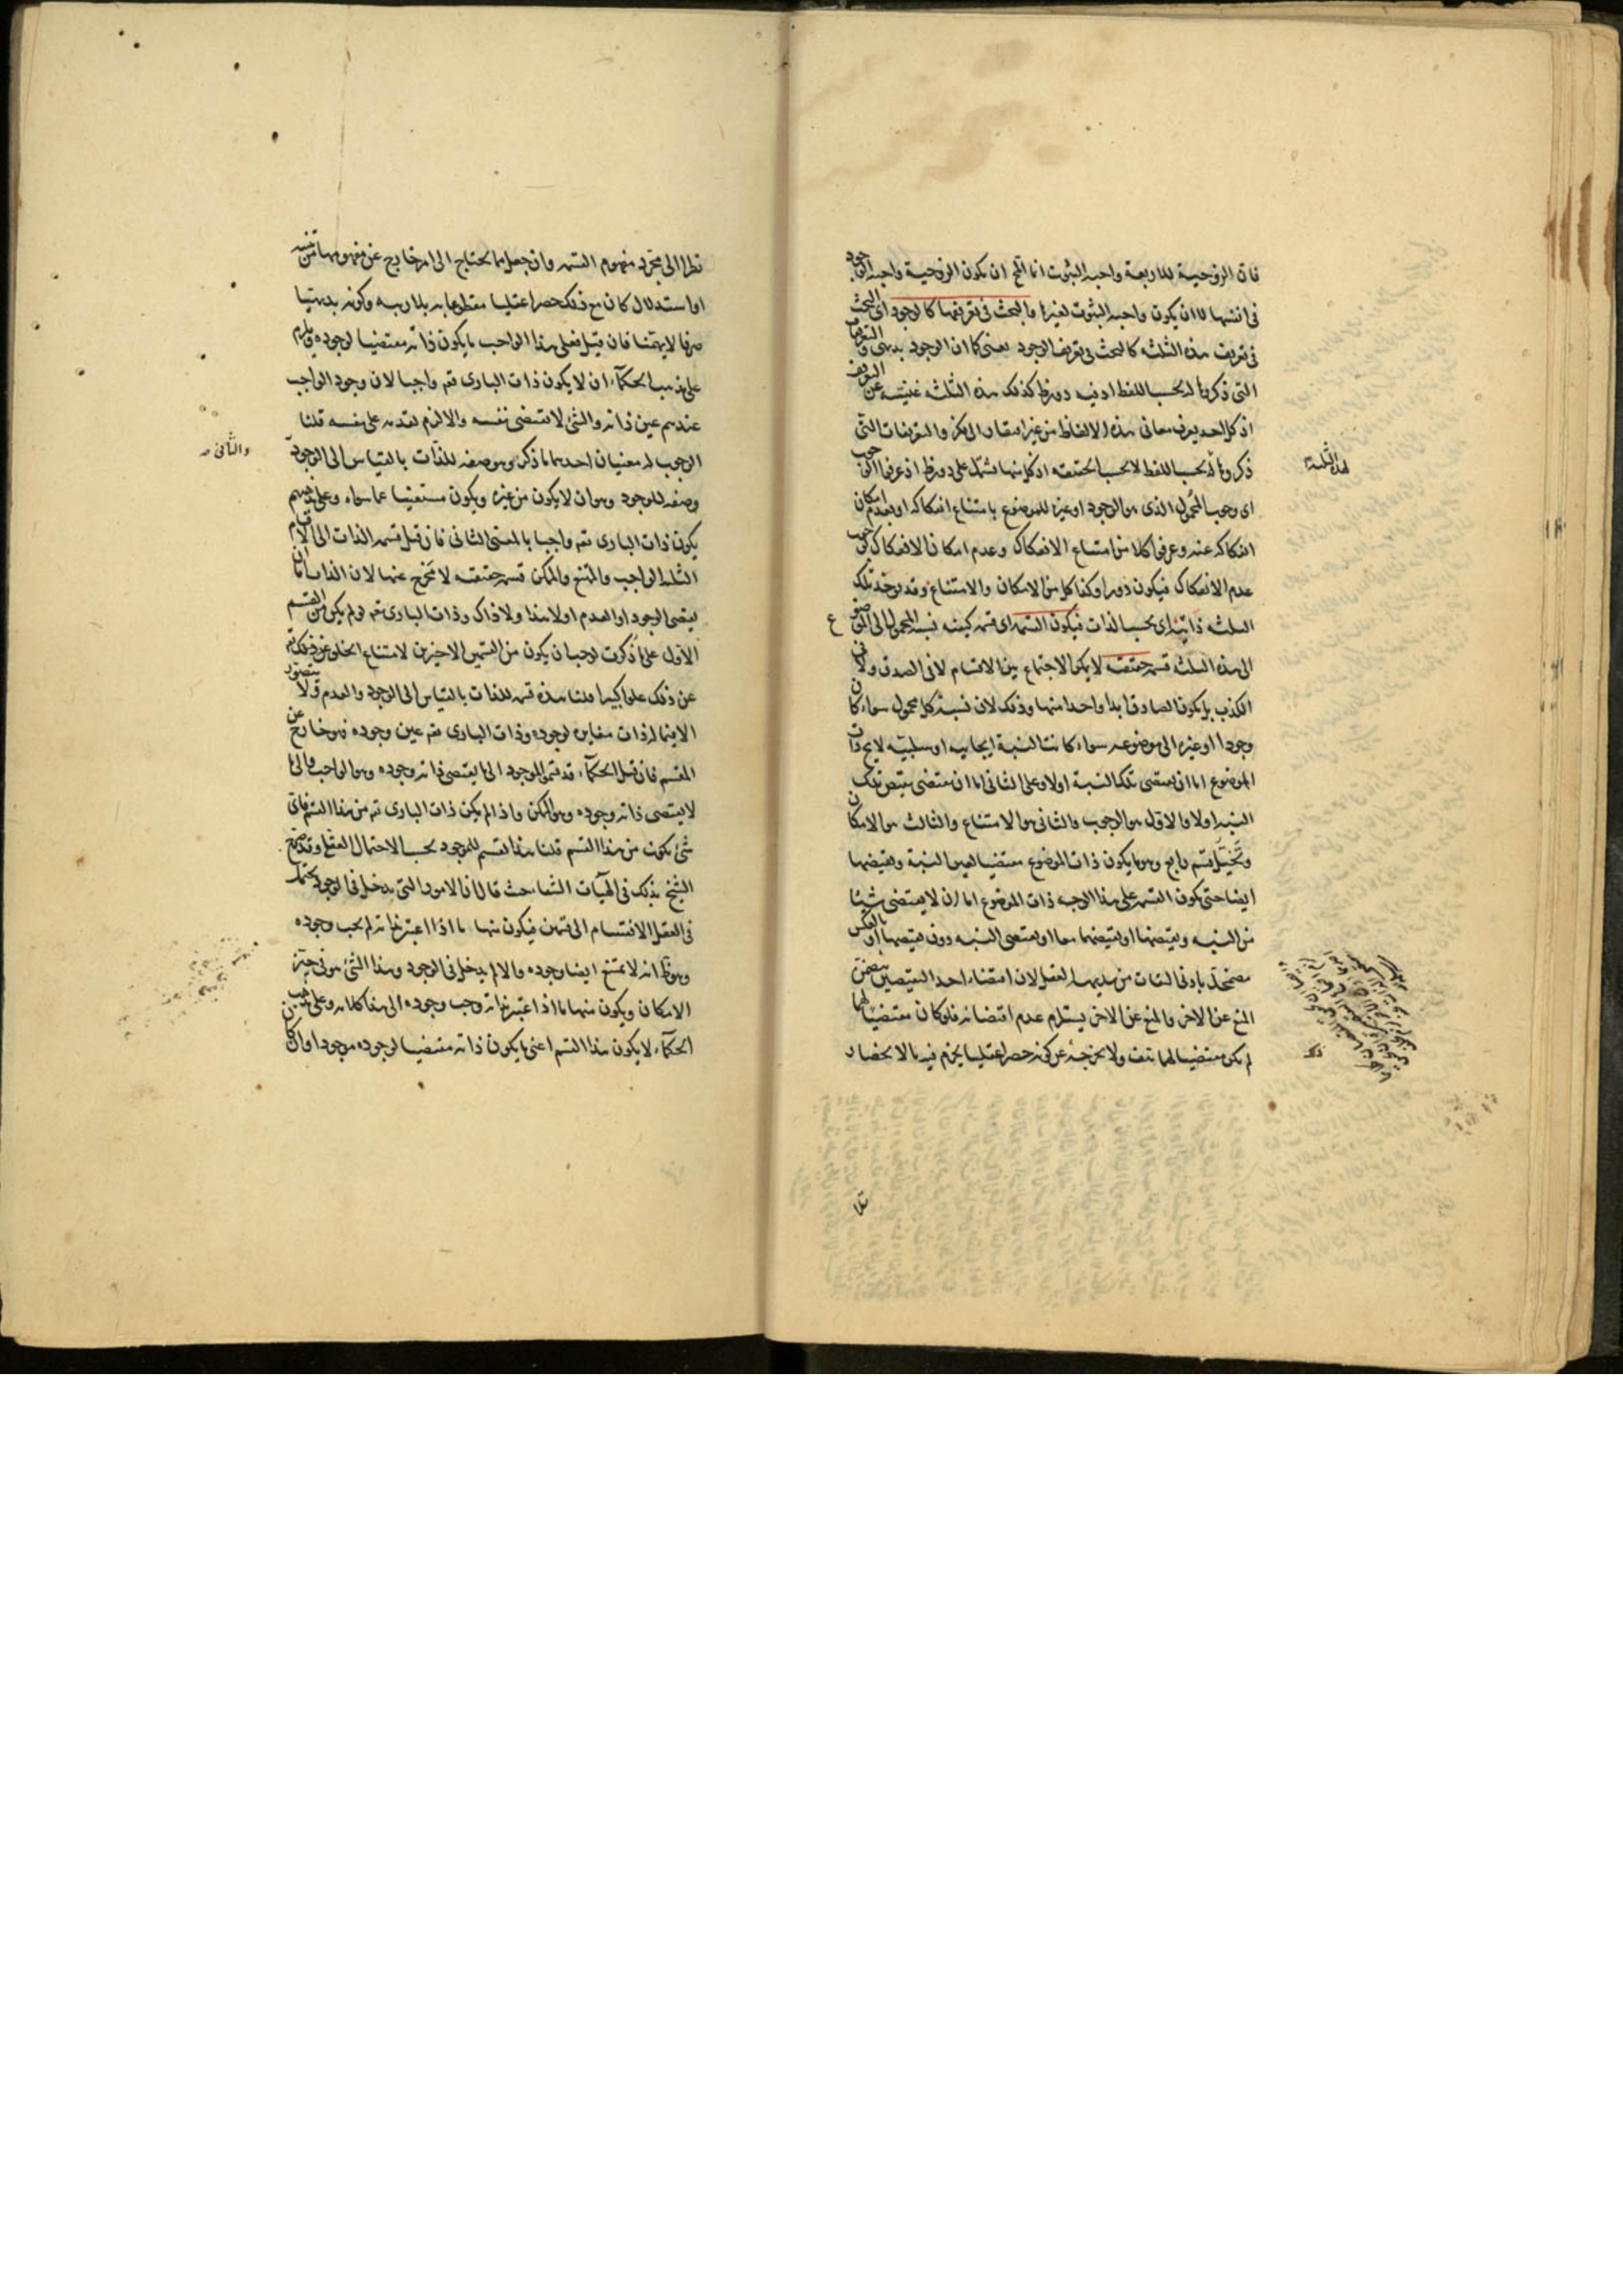 فان الزوجية للاربعة واجبة الثبوت انما المح ان يكون الزوجية واجبة الوجود
فى نفسها لا ان يكون واجبة الثبوت لغيرها والبحث فى تعريفها كالوجود اى البحث
فى تعريف هذه الثلثة كالبحث فى تعريف الوجود يعنى كما ان الوجود بديهى والتعريفات
التى ذكروها له بحسب اللفظ او فيه دور ظ كذلك هذه الثلثة غنية عن التعريف
اذ كل احد يعرف معانى هذه الالفاظ من غير افتقار الى فكر والتعريفات التى
ذكروها له بحسب اللفظ لا بحسب الحقيقة اذ كل منها يشتمل على دور ظ اذ عرفوا الوجوب
اى وجوب المحمول الذى هو الوجود او غيره للموضوع بامتناع انفكاكه او بعدم امكان
انفكاكه عنه وعرفوا كلا من امتناع الانفكاك وعدم امكان الانفكاك بوجوب
عدم الانفكاك فيكون دورا وكذا كل من الامكان والامتناع وقد يؤخذ تلك
الثلثة ذاتية اى بحسب الذات فيكون القسمة اى قسمة كيفية نسبة المحمول الى الموضوع
الى هذه الثلثة قسمة حقيقية لا يمكن الاجتماع بين الاقسام لا فى الصدق ولا فى
الكذب بل يكون الصادق ابدا واحدا منها وذلك لان نسبة كل محمول سواء كان
وجودا او غيره الى موضوعه سواء كانت النسبة ايجابية او سلبية لا يخ ذات
الموضوع اما ان يقتضى تلك النسبة اولا وعلى الثانى اما ان يقتضى نقيض تلك
النسبة اولا والاول هو الوجوب والثانى هو الامتناع والثالث هو الامكان
وتخيل قسم رابع وهو ما يكون ذات الموضوع مقتضيا لعين النسبة ونقيضها
ايضا حتى يكون القسمة على هذا الوجه ذات الموضوع اما ان لا يقتضى شيئا
من النسبة ونقيضها او يقتضيهما معا او يقتضى النسبة دون نقيضها او بالعكس
مضمحل بادنى التفات من بديهة العقل لان اقتضاء احد النقيضين يتضمن
المنع عن الاخر والمنع عن الاخر يستلزم عدم اقتضائه فلو كان مقتضيا لهما
لم يكن مقتضيا لهما هف ولا يخرجه عن كونه حصرا عقليا يجزم فيه بالانحصار
لهذه الثلثة
نظرا الى مجرد مفهوم القسمة وان جعل مما يحتاج الى امر خارج عن مفهومها من تنبيه
او استدلال كان مع ذلك حصرا عقليا مقطوعا به بلا ريبة وكونه بديهيا
صرفا لا يهمنا فان قيل فعلى هذا الواجب ما يكون ذاته مقتضيا لوجوده ويلزم
على مذهب الحكماء ان لا يكون ذات البارى تعه واجبا لان وجود الواجب
عندهم عين ذاته والشئ لا يقتضى نفسه والا لزم تقدمه على نفسه قلنا
الوجوب له معنيان احدهما ما ذكر وهو صفة للذات بالقياس الى الوجود
والثانى
وصفة للوجود وهو ان لا يكون من غيره ويكون مستغنيا عما سواه وعلى مذهبهم
يكون ذات البارى تعه واجبا بالمعنى الثانى فان قيل قسمة الذات الى الاقسام
الثلثة الواجب والممتنع والممكن قسمة حقيقية لا مخرج عنها لان الذات اما ان
يقتضى الوجود او العدم او لا هذا ولا ذاك وذات البارى تعه لو لم يكن من القسم
الاول على ما ذكرت لوجب ان يكون من القسمين الاخيرين لامتناع الخلو عن ذلك تعه
عن ذلك علوا كبيرا قلنا هذه قسمة للذات بالقياس الى الوجود والعدم ولا يتصور
الا فيما له ذات مغايرة لوجوده وذات البارى تعه عين وجوده فهو خارج عن
المقسم فان قيل الحكماء قد قسموا الموجود الى ما يقتضى ذاته وجوده وهو الواجب والى ما
لا يقتضى ذاته وجوده وهو الممكن واذا لم يكن ذات البارى تعه من هذا القسم فاى
شئ يكون من هذا القسم قلنا هذا تقسيم للموجود بحسب الاحتمال العقلى وقد صرح
الشيخ بذلك فى الهيات الشفا حيث قال ان الامور التى يدخل فى الوجود يحتمل
فى العقل الانقسام الى قسمين فيكون منها ما اذا اعتبر بذاته لم يجب وجوده
وهو ظ انه لا يمتنع ايضا وجوده والا لم يدخل فى الوجود وهذا الشئ هو فى حيز
الامكان ويكون منها ما اذا اعتبر بذاته وجب وجوده الى هنا كلامه وعلى مذهب
الحكماء لا يكون هذا القسم اعنى ما يكون ذاته مقتضيا لوجوده موجودا وان كان